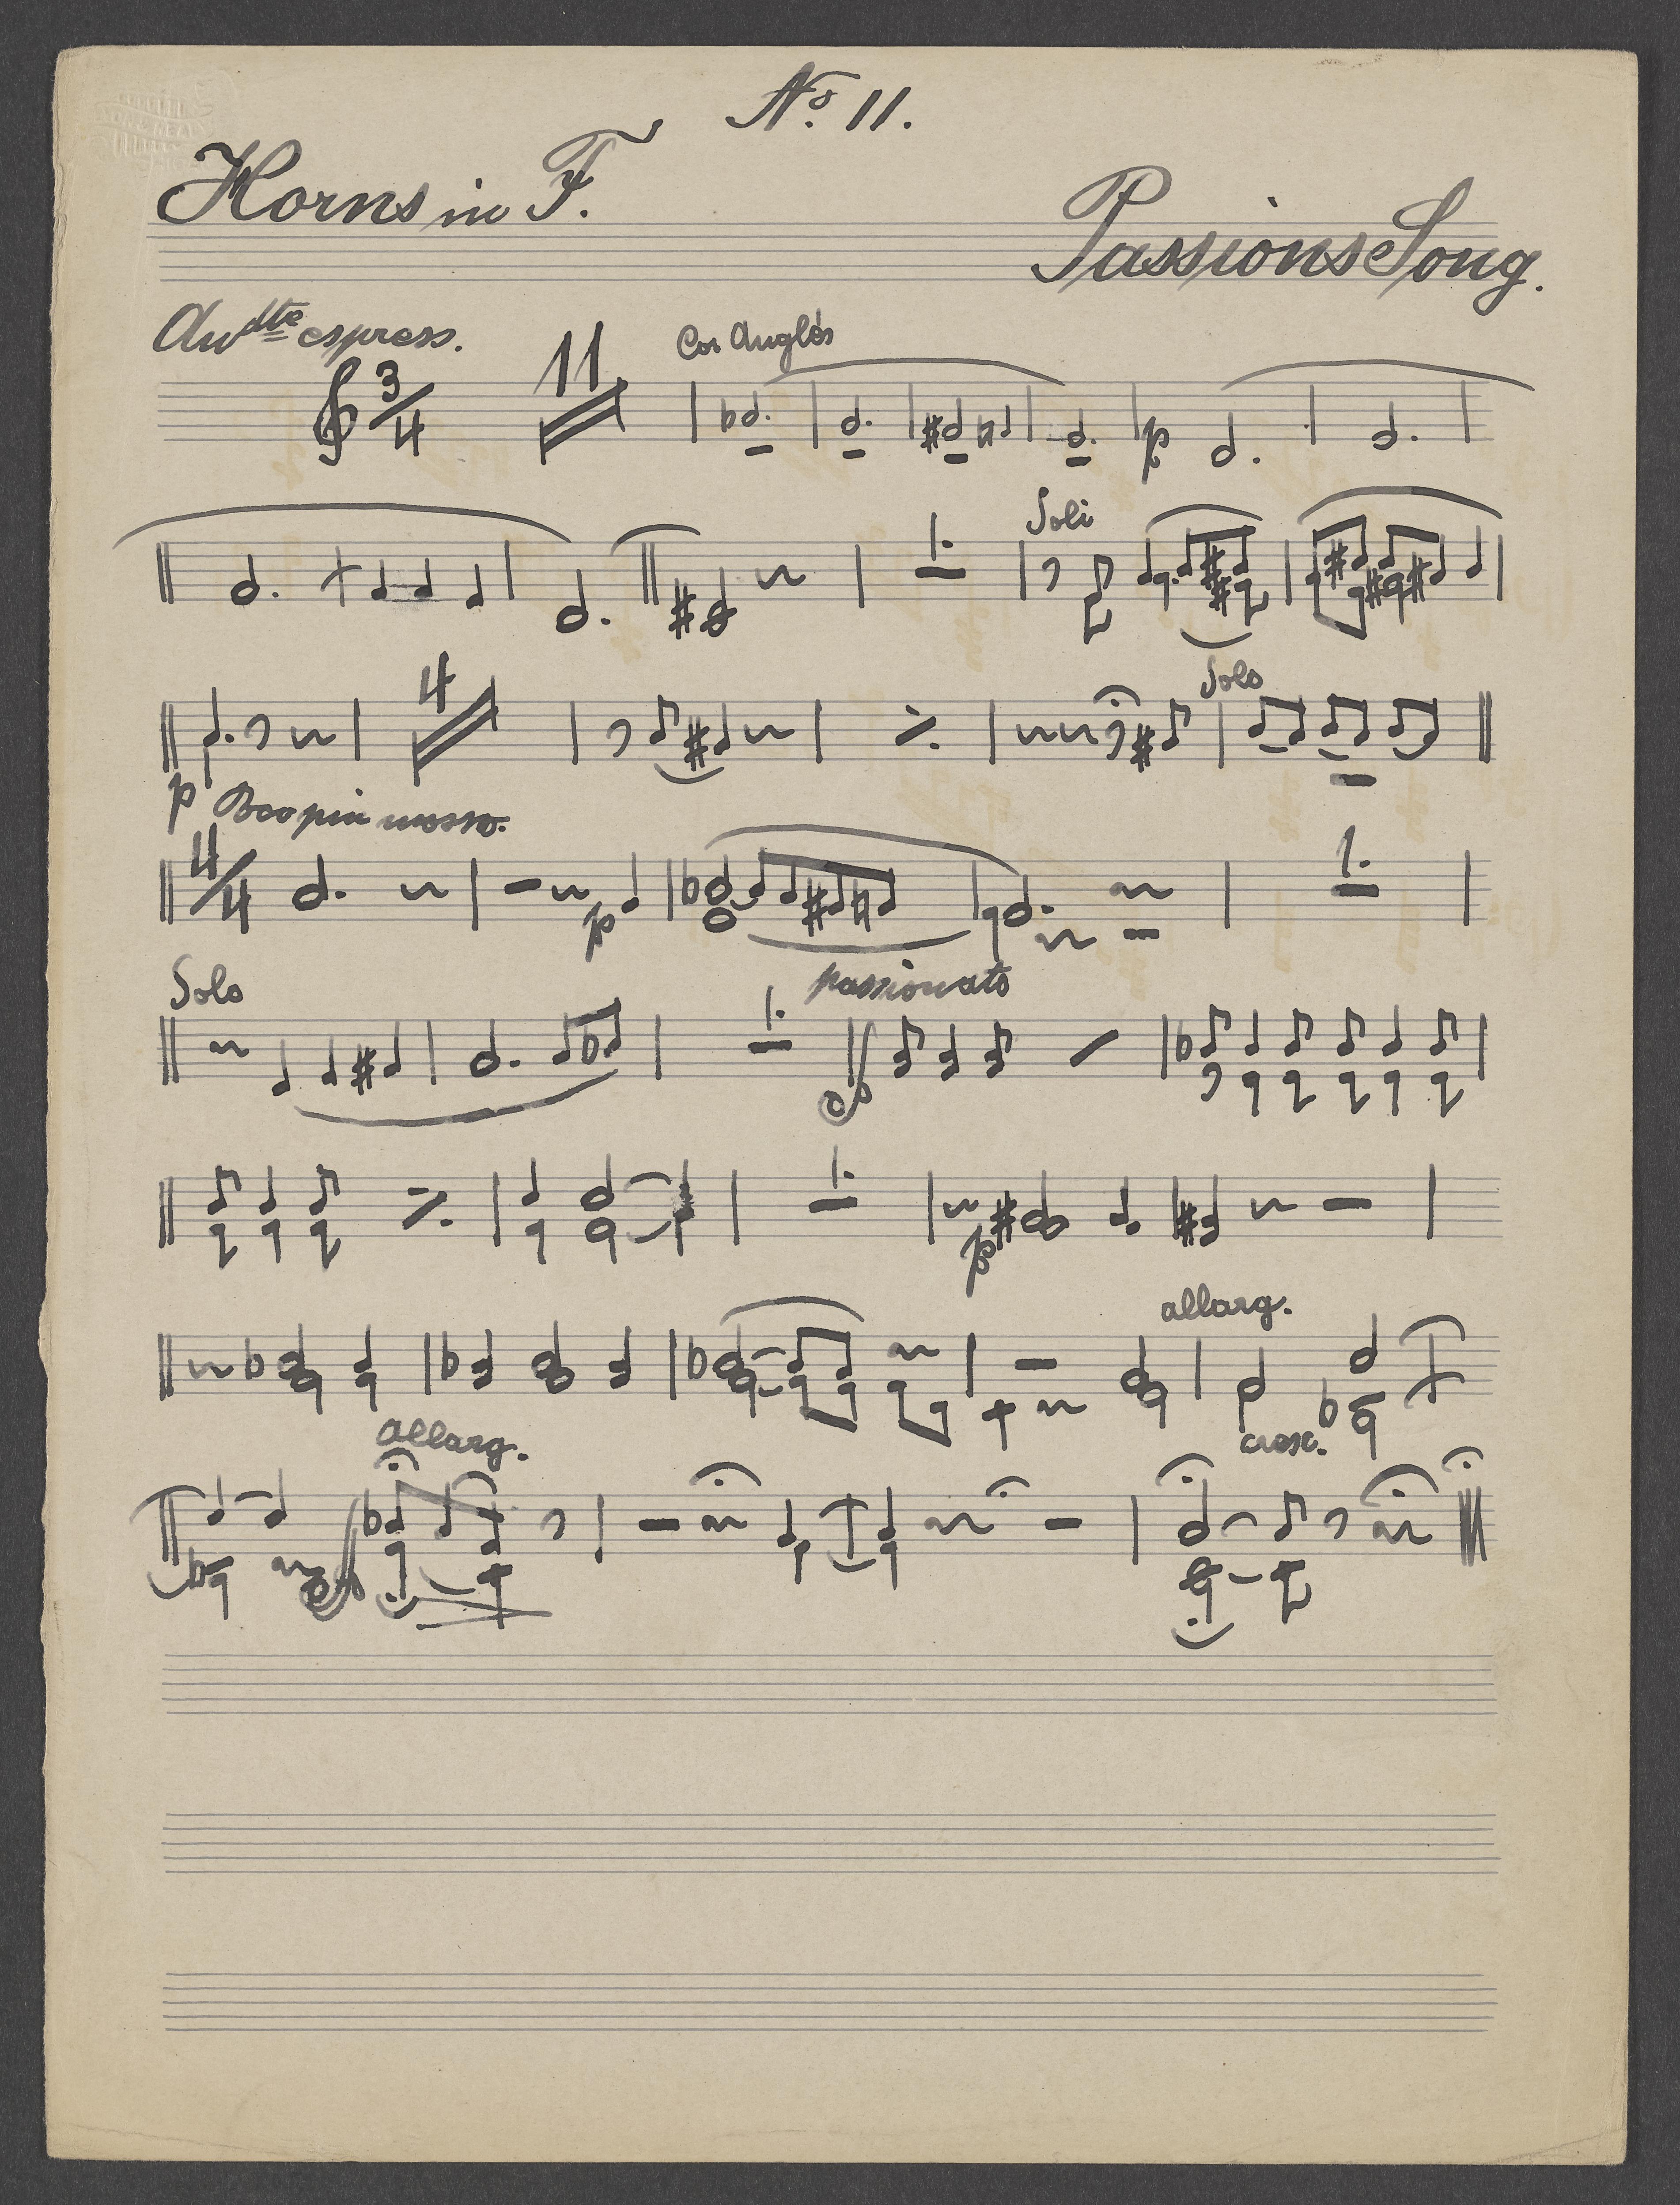 No. 11.
Horns in F.
Passions Song.
Andte espress.
3/4
11
Cor Anglès
p
1.
Soli
4
Solo
p
Poco più mosso.
4/4
p
1.
Solo
1.
passionato
sf
1.
p
allarg.
cresc.
allarg.
sf